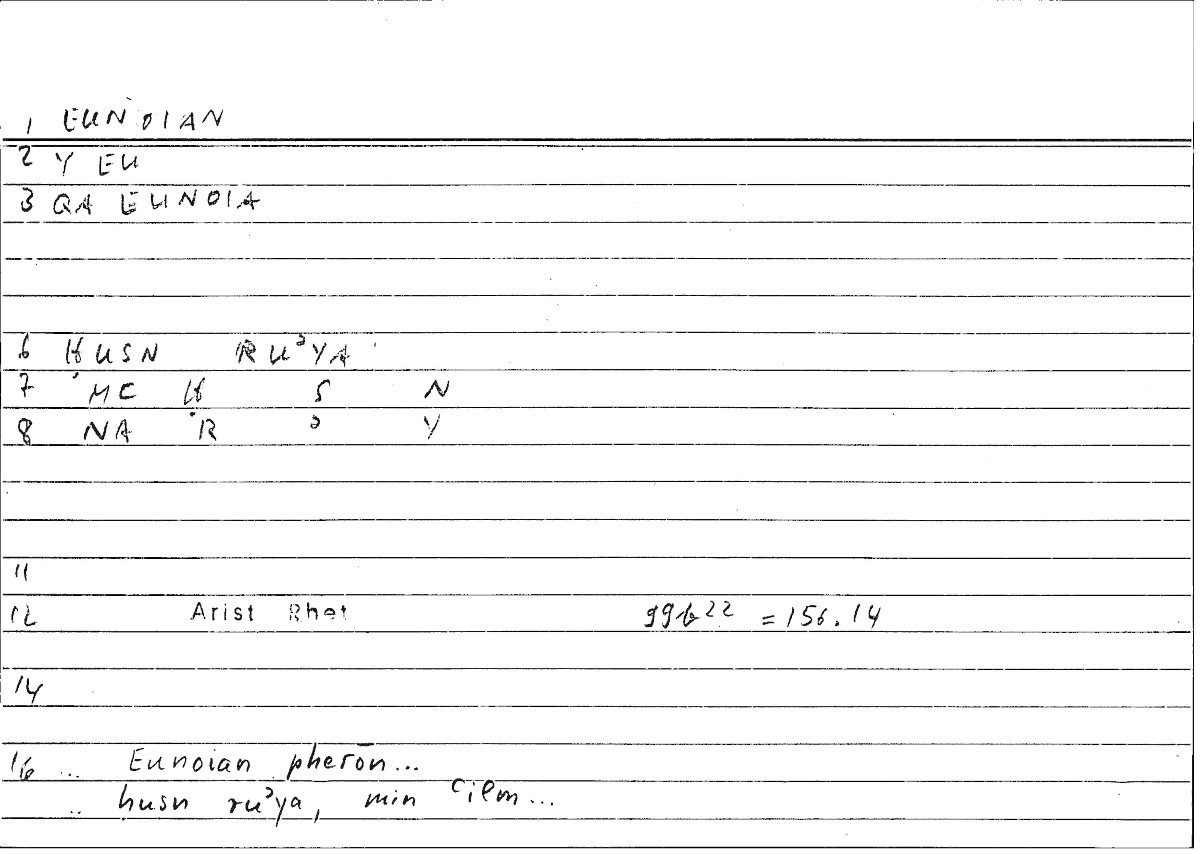 1 EUNOIAN
2 Y EU
3 QA EUNOIA
6 HUSN RUʾYA
7 MC H S N
8 NA R ʾ Y
11
12 Arist Rhet 99b22 = 156.14
14
16 ... Eunoian pherōn...
.. husn ruʾya, min ʿilm...